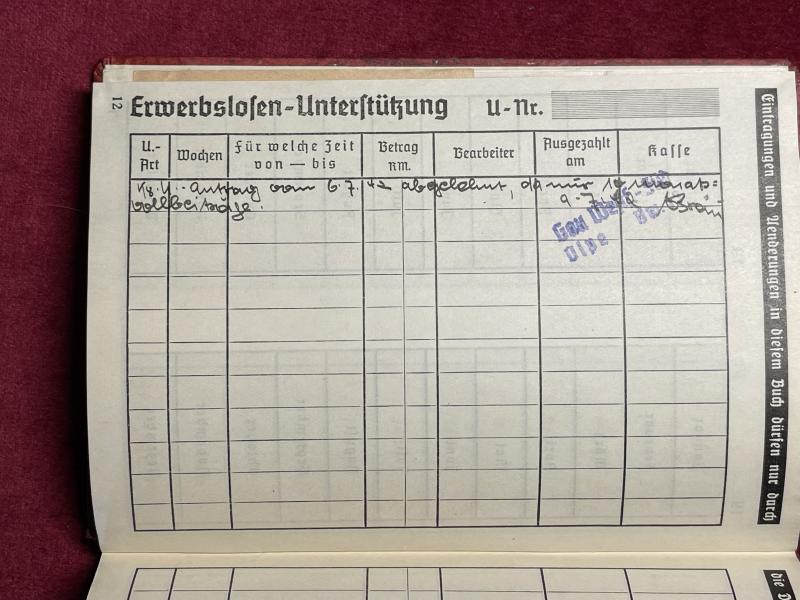 12 Erwerbslosen-Unterstützung U-Nr.
U.-Art Wochen Für welche Zeit von — bis Betrag RM. Bearbeiter Ausgezahlt am Kasse
Antrag vom 6.7.42 abgelehnt, da nur 14 Monats=
vollbeiträge. 9.7.42
Gau
Olpe
Eintragungen und Aenderungen in diesem Buch dürfen nur durch
die